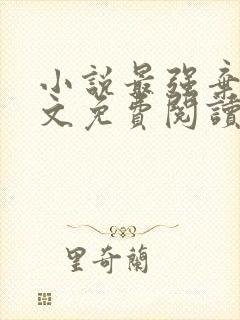 小說最强棄
文免費閱讀
里奇蘭